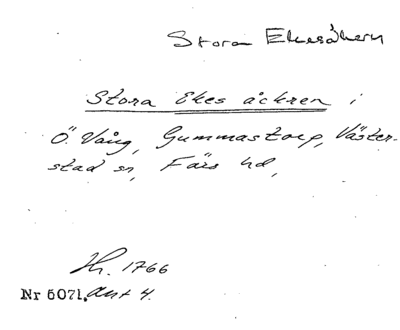 Stora Ekesåkern
Stora Ekes åckren i
Ö. Vång, Gummastorp, Väster-
stad sn, Färs hd,
Hh. 1766
Nr 5071. Akt 4.